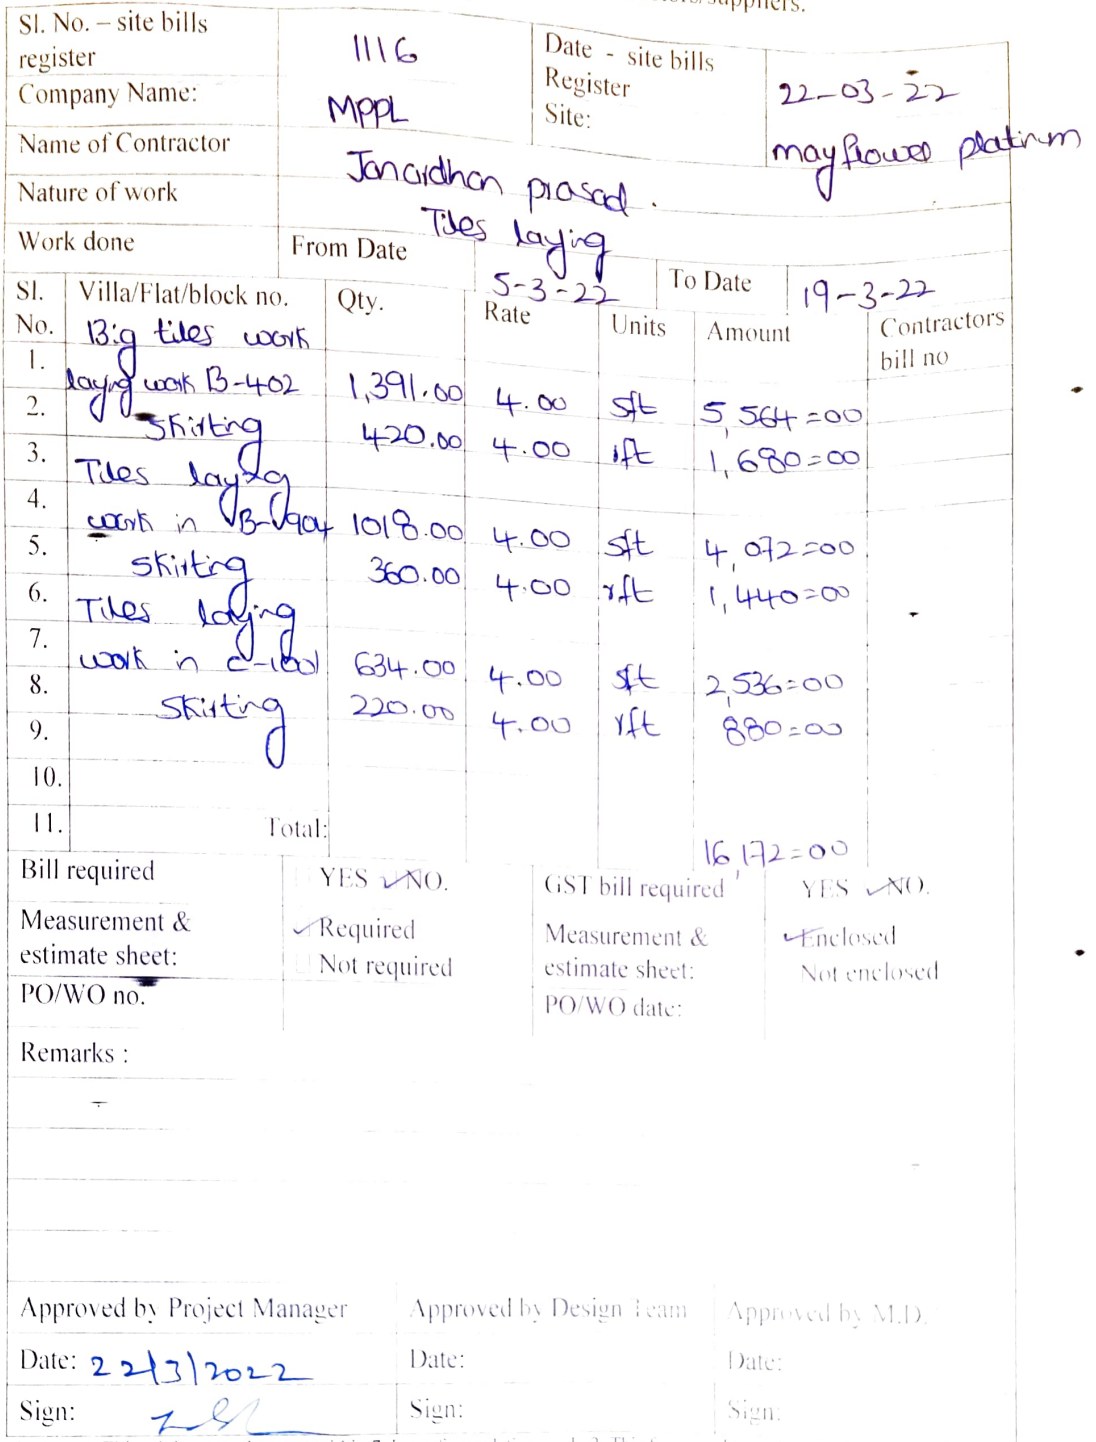 suppliers.
Sl. No. – site bills register 1116 Date - site bills Register 22-03-22
Company Name: MPPL Site: mayflower platinum
Name of Contractor Janardhan prasad.
Nature of work Tiles laying
Work done From Date 5-3-22 To Date 19-3-22
Sl. No. Villa/Flat/block no. Qty. Rate Units Amount Contractors bill no
1. Big tiles work
2. laying work B-402 1,391.00 4.00 sft 5,564=00
3. Skirting 420.00 4.00 rft 1,680=00
4. Tiles laying
5. work in B-904 1018.00 4.00 sft 4,072=00
6. Skirting 360.00 4.00 rft 1,440=00
7. Tiles laying
8. work in C-1001 634.00 4.00 sft 2,536=00
9. Skirting 220.00 4.00 rft 880=00
10.
11. Total: 16,172=00
Bill required YES ✓NO. GST bill required YES ✓NO.
Measurement & estimate sheet: ✓Required Not required Measurement & estimate sheet: ✓Enclosed Not enclosed
PO/WO no. PO/WO date:
Remarks :
Approved by Project Manager Approved by Design Team Approved by M.D.
Date: 22/3/2022 Date: Date:
Sign: Sign: Sign: